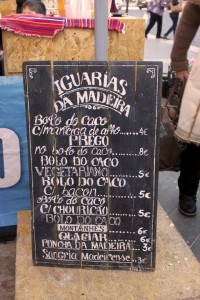 IGUARIAS
DA MADEIRA
Bolo do caco
C/manteiga de alho 4€
PREGO
no bolo do caco 8€
BOLO DO CACO
VEGETARIANO 5€
BOLO DO CACO
C/ bacon 5€
Bolo do caco
C/ CHOURIÇÃO 5€
BOLO DO CACO
MONTANHÊS 6€
GLACIAR 3€
PONCHA DA MADEIRA 3€
Sangria Madeirense 3€